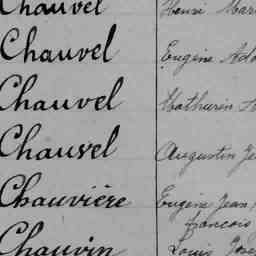 Chauvel Henri Mar
Chauvel Eugène Ado
Chauvel Mathurin
Chauvel Augustin Je
Chauvière Eugène Jean
françois
Chauvin Louis Jose